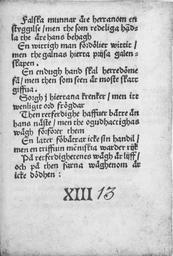 Falska munnar äre herranom en
styggilse / men the som redeliga hād-
la the äre hans behagh
En wittigh man fördölier wittit /
men the galnas hierta prijsa galen-
skapen.
En endugh hand skal herredöme
få / men then som seen är moste skatt
giffua.
Sorgh j hiertana krenker / men itt
wenligit ord frögdar
Then retferdighe haffuer bätre än
hans näste / men the ogudhactighas
wägh förförer them
En later föbätrar icke sin handil /
men en triffuin mēniskia warder rijk
På retferdighetenes wägh är lijff /
och på then farna wäghenom är
icke dödhen :
XIII 13